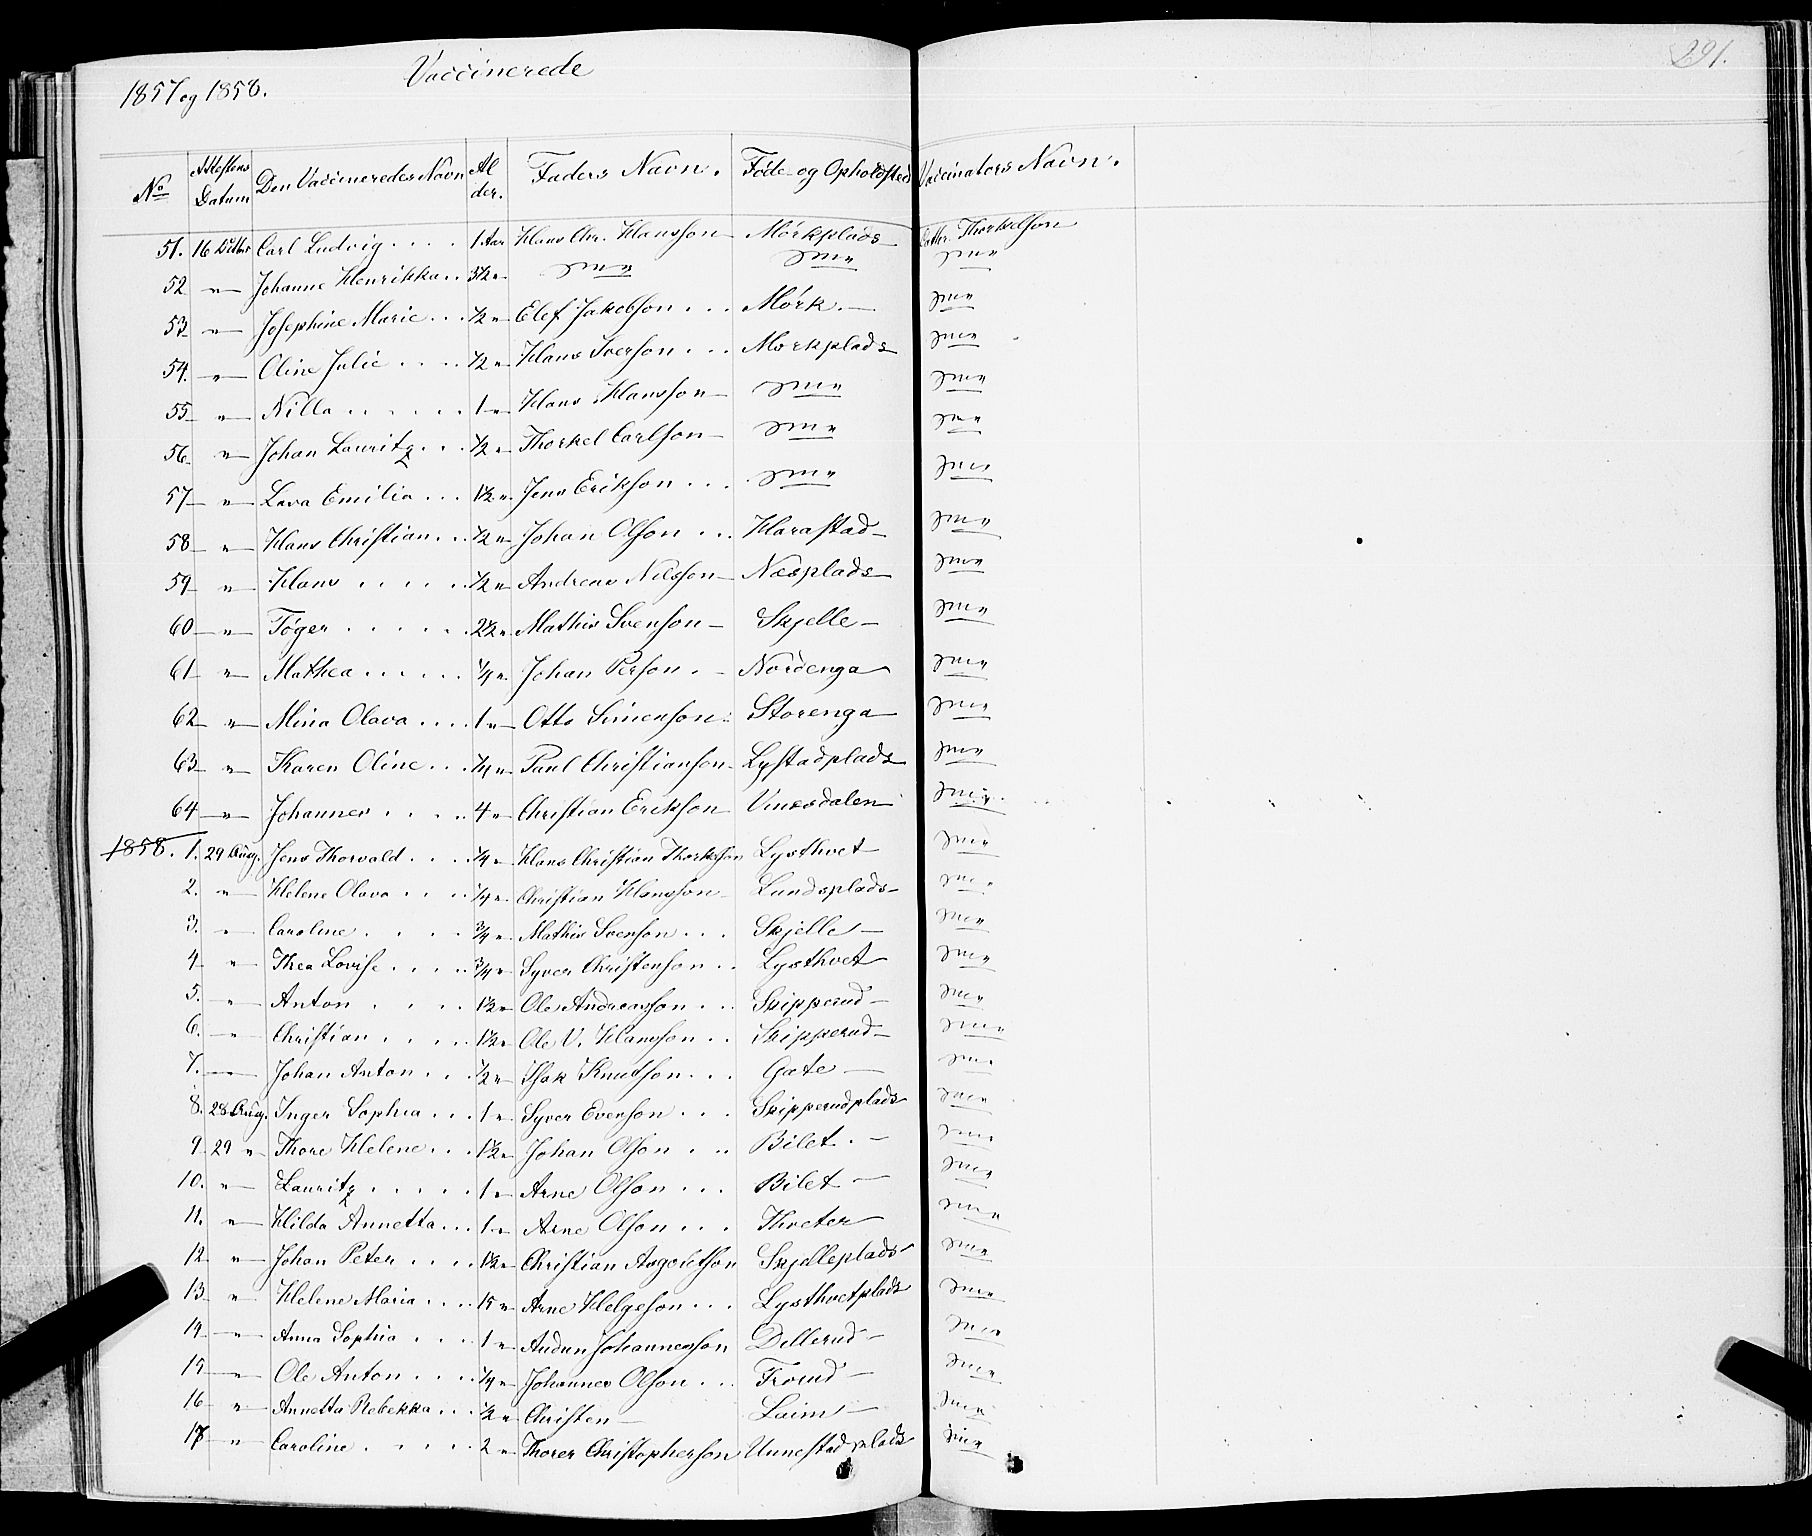 291.
Vaccinerede
1857 og 1858.
No Attestens Datum Den Vaccineredes Navn Alder. Faders Navn. Føde- og Opholdsted Vaccinators Navn.
51. 16 Carl Ludvig . . . . 1 Aar Hans Chr. Hansson Mørkplads Thorkelson
52 " Johanne Henrikka . . 3½ " " " "
53 " Josephine Marie . . . ½ " Elef Jakobson . . . Mørk. "
54. " Oline Julie . . . . ½ " Hans Iverson . . . Mørkplads "
55 " Nilla . . . . . . 1 " Hans Hansson " "
56 " Johan Lauritz . . . ½ " Thorkel Carlson " "
57 " Lava Emilia . . . 1½ " Jens Erikson . . . " "
58 " Hans Christian . . . ½ " Johan Olson . . . Harastad "
59 " Hans . . . . . ½ " Andreas Nilsson Næsplads "
60 " Tøger . . . . . . 2½ " Mathis Svenson Skjelle "
61 " Mathea . . . . . ¼ " Johan Person . Nordenga "
62 " Mina Olava . . . . 1 " Otto Simenson Storenga "
63 " Karen Oline . . . ¼ " Paul Christianson Lystadplads "
64 " Johannes . . . . . 4 " Christian Erikson "
1858. 1. 29 Aug. Jens Thorvald . . . . ¼ " Hans Christian Lysthvet "
2. " Helene Olava . . . . ¼ " Christian Hansson Lundsplads "
3. " Caroline . . . . . ¾ " Mathis Svenson . . . Skjelle "
4 " Thea Lovise . . . . ¾ " Syver Christenson . . Lysthvet "
5. " Anton . . . . . 1½ " Ole Andreasson . . . Skipperud "
6. " Christian . . . . . 1½ " Ole V. Hansson . . Skipperud "
7. Johan Anton . . . ½ " Isak Knutson . . . Gate "
8. 28 Aug. Inger Sophia . . . 1 " Syver Evenson . . . Skipperudplads "
9 29 " Thore Helene . . . 1½ " Johan Olson . . . Bilet . "
10. " Lauritz . . . . . 1 " Arne Olson . . . Bilet "
11. " Hilda Annetta . . . 1 " Arne Olson . . . Thveter "
12 " Johan Peter . . . . 1½ " Christian Skjelleplads "
13 " Helene Maria . . . . 15 " Arne Helgeson . . . Lysthvetplads "
14 " Anna Sophia . . . . 1 " Audun Johannesson Dillerud "
15 " Ole Anton . . . . ¼ " Johannes Olson . . . Froud "
16 " Annetta Rebekka . . . ½ " Christen Laim "
17 " Caroline . . . . . 2 " Thorer Christopherson Unnestadplads "